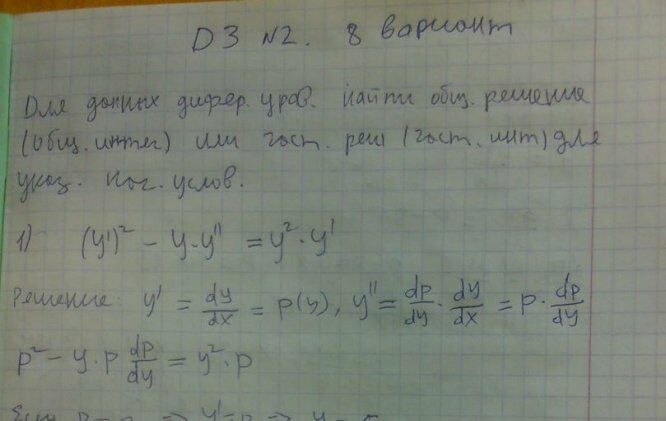 ДЗ №2. 8 вариант
Для данных дифер. урав. найти общ. решение
(общ. интег) или част. реш (част. инт) для
указ. нач. услов.
1) (y')² - y·y'' = y²·y'
Решение: y' = dy/dx = p(y), y'' = dp/dy · dy/dx = p · dp/dy
p² - y·p dp/dy = y²·p